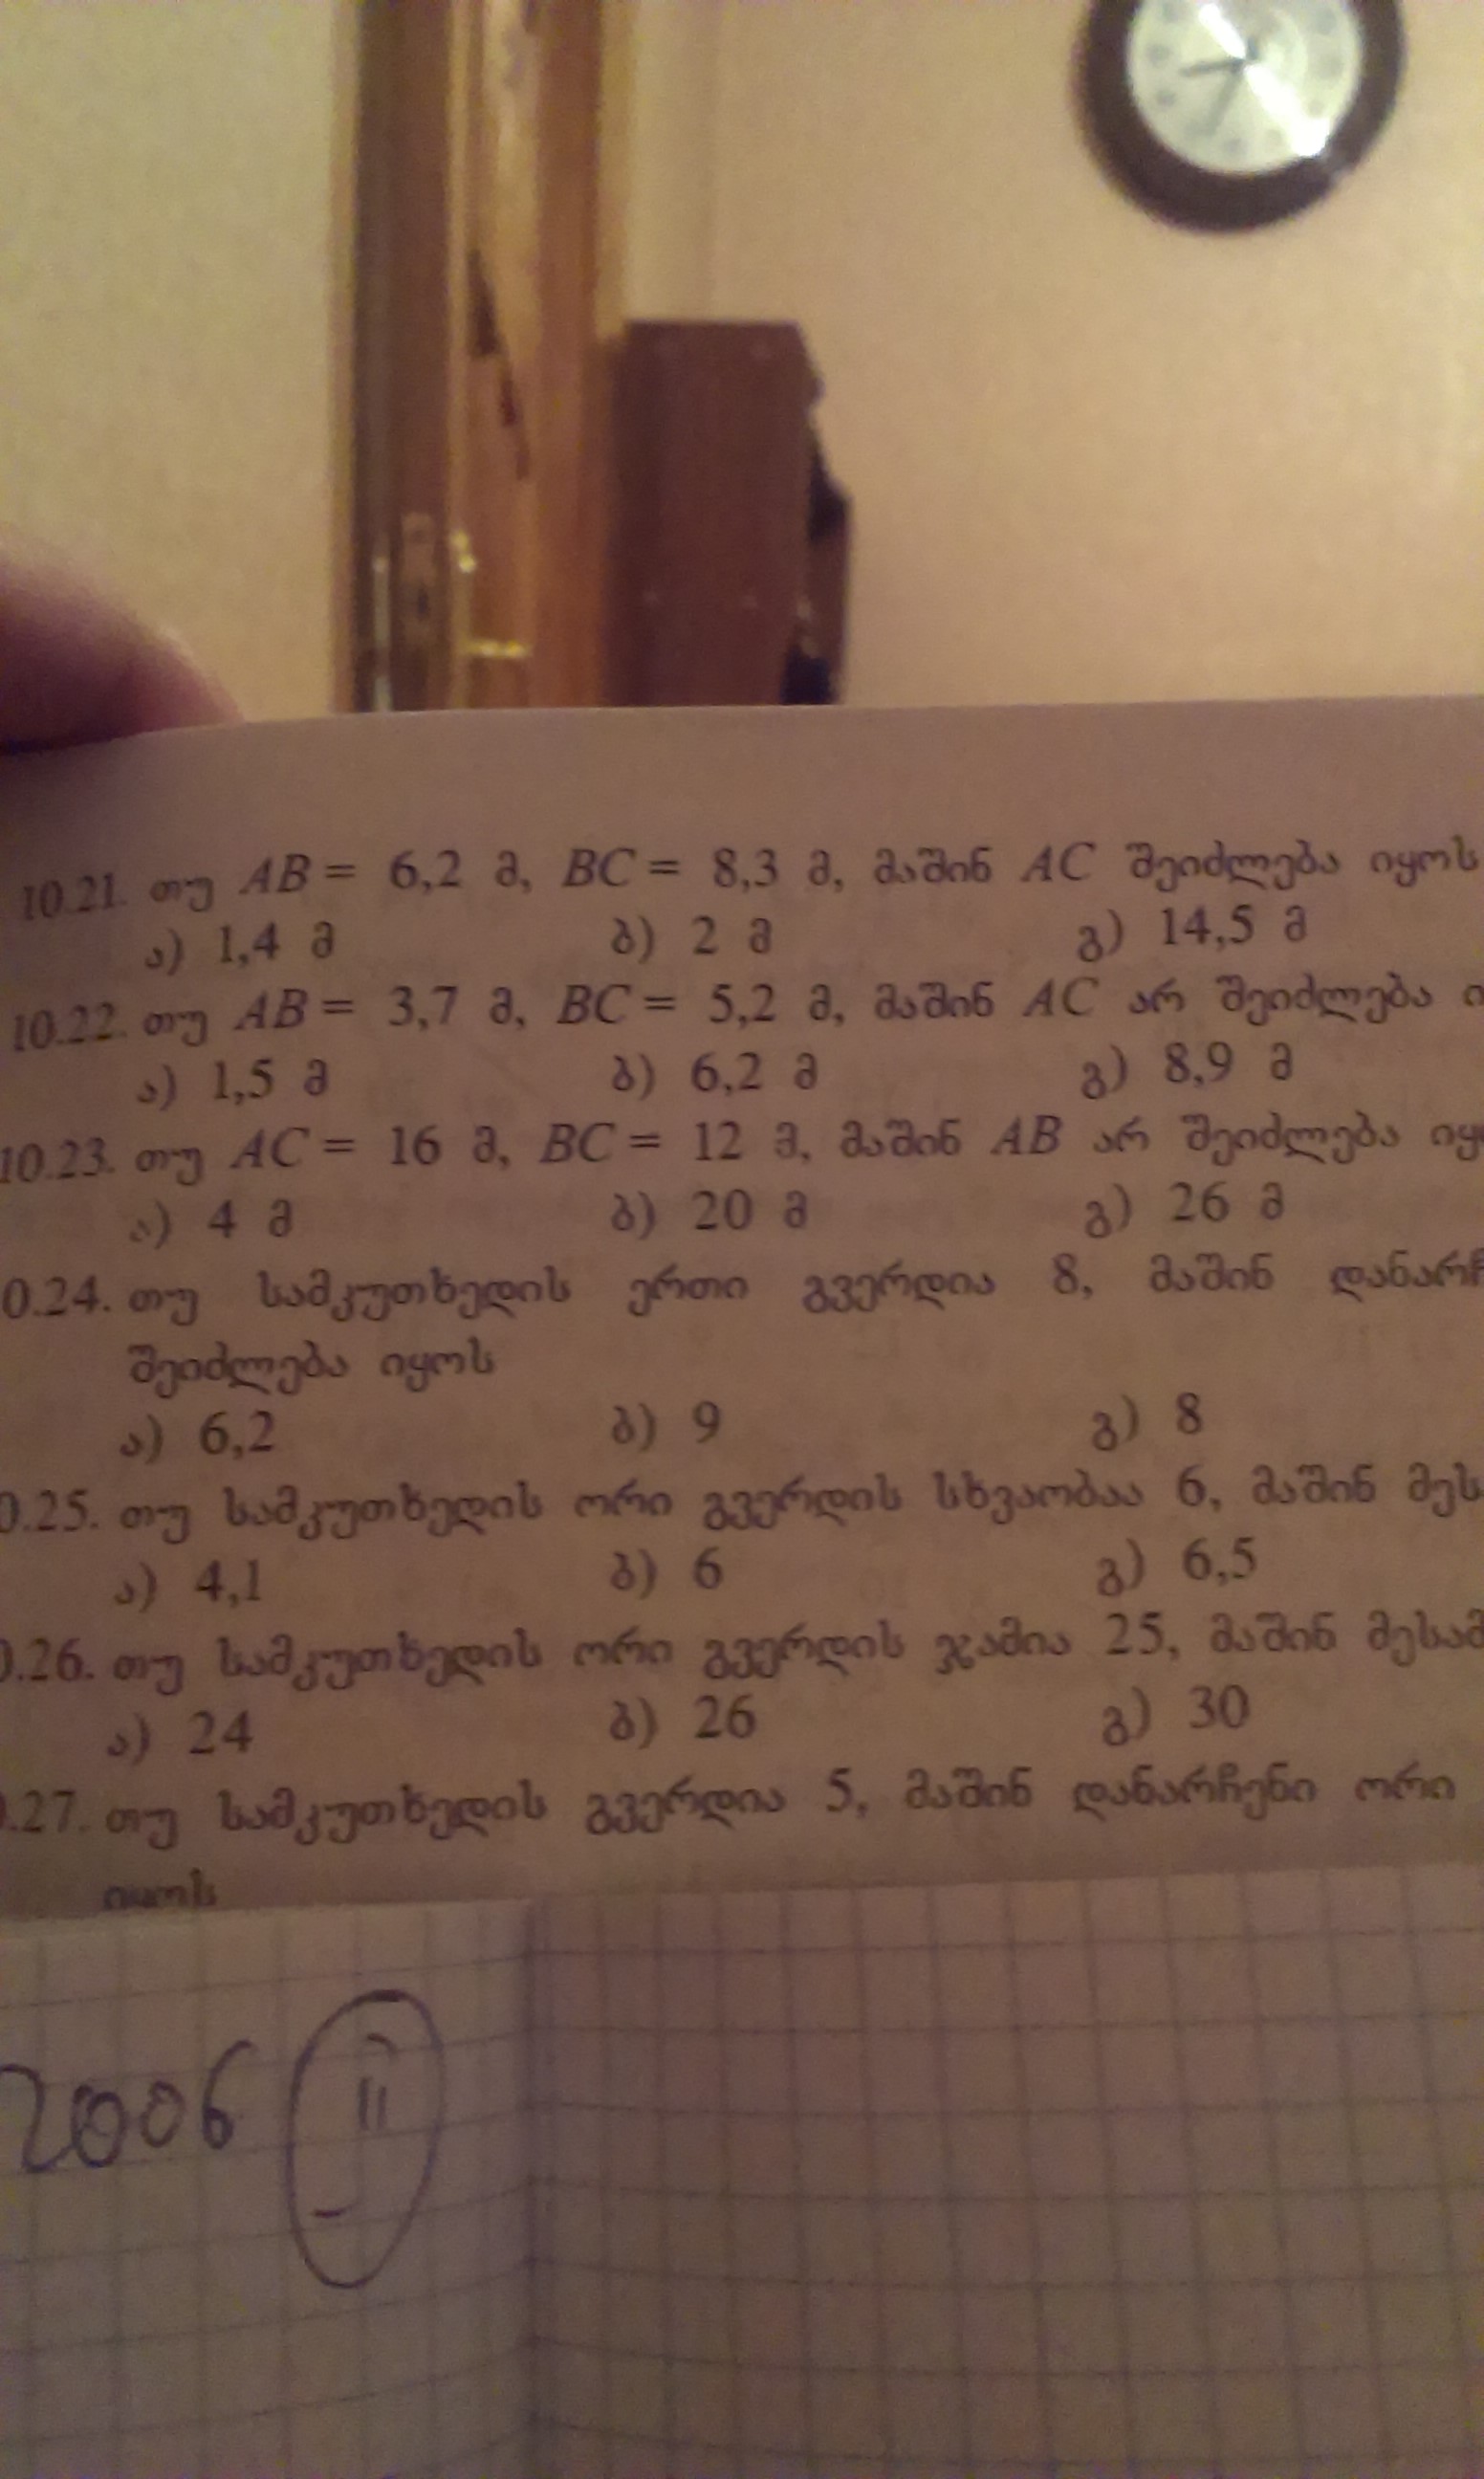 10.21. თუ AB = 6,2 მ, BC = 8,3 მ, მაშინ AC შეიძლება იყოს
ა) 1,4 მ ბ) 2 მ გ) 14,5 მ
10.22. თუ AB = 3,7 მ, BC = 5,2 მ, მაშინ AC არ შეიძლება ი
ა) 1,5 მ ბ) 6,2 მ გ) 8,9 მ
10.23. თუ AC = 16 მ, BC = 12 მ, მაშინ AB არ შეიძლება იყ
ა) 4 მ ბ) 20 მ გ) 26 მ
0.24. თუ სამკუთხედის ერთი გვერდია 8, მაშინ დანარჩ
შეიძლება იყოს
ა) 6,2 ბ) 9 გ) 8
0.25. თუ სამკუთხედის ორი გვერდის სხვაობაა 6, მაშინ მეს
ა) 4,1 ბ) 6 გ) 6,5
0.26. თუ სამკუთხედის ორი გვერდის ჯამია 25, მაშინ მესამ
ა) 24 ბ) 26 გ) 30
0.27. თუ სამკუთხედის გვერდია 5, მაშინ დანარჩენი ორი
იყოს
2006 II